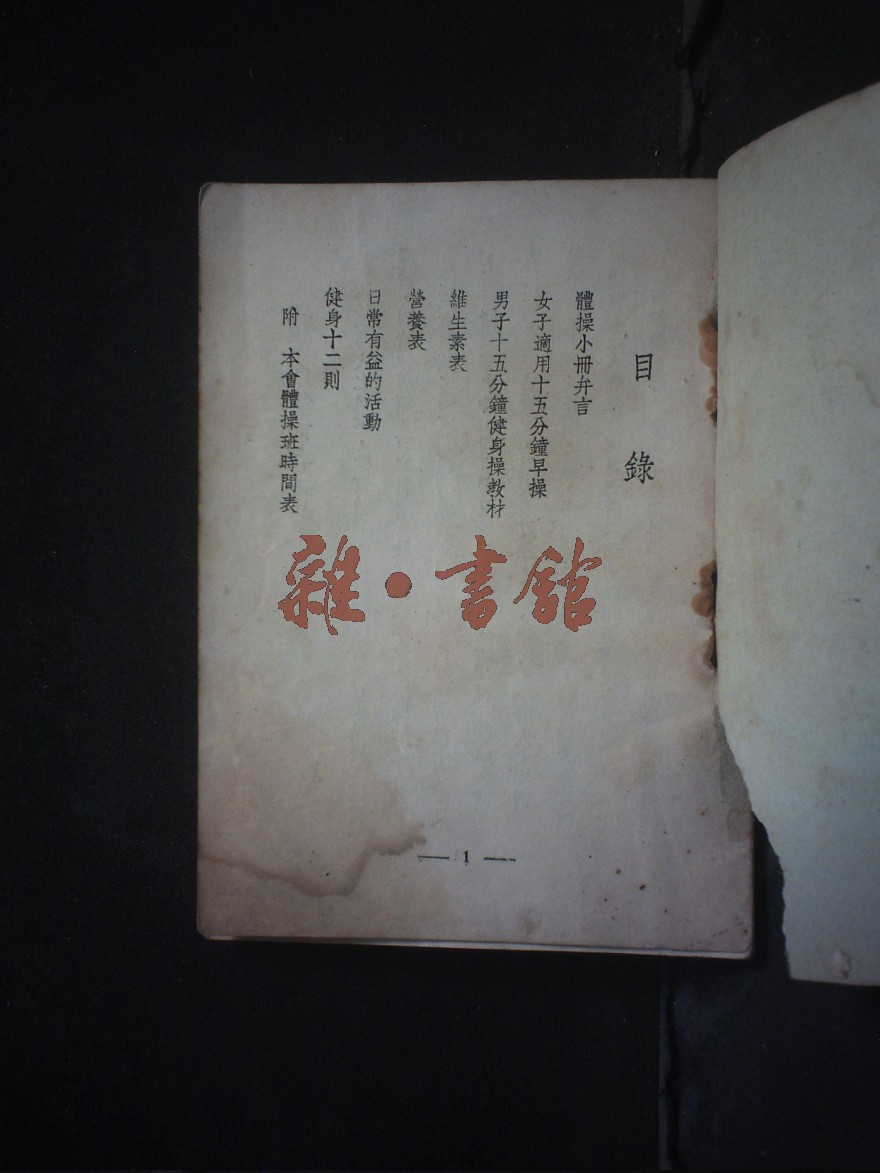 目錄
體操小冊弁言
女子適用十五分鐘早操
男子十五分鐘健身操教材
維生素表
營養表
日常有益的活動
健身十二則
附 本會體操班時間表
雜·書舘
— 1 —